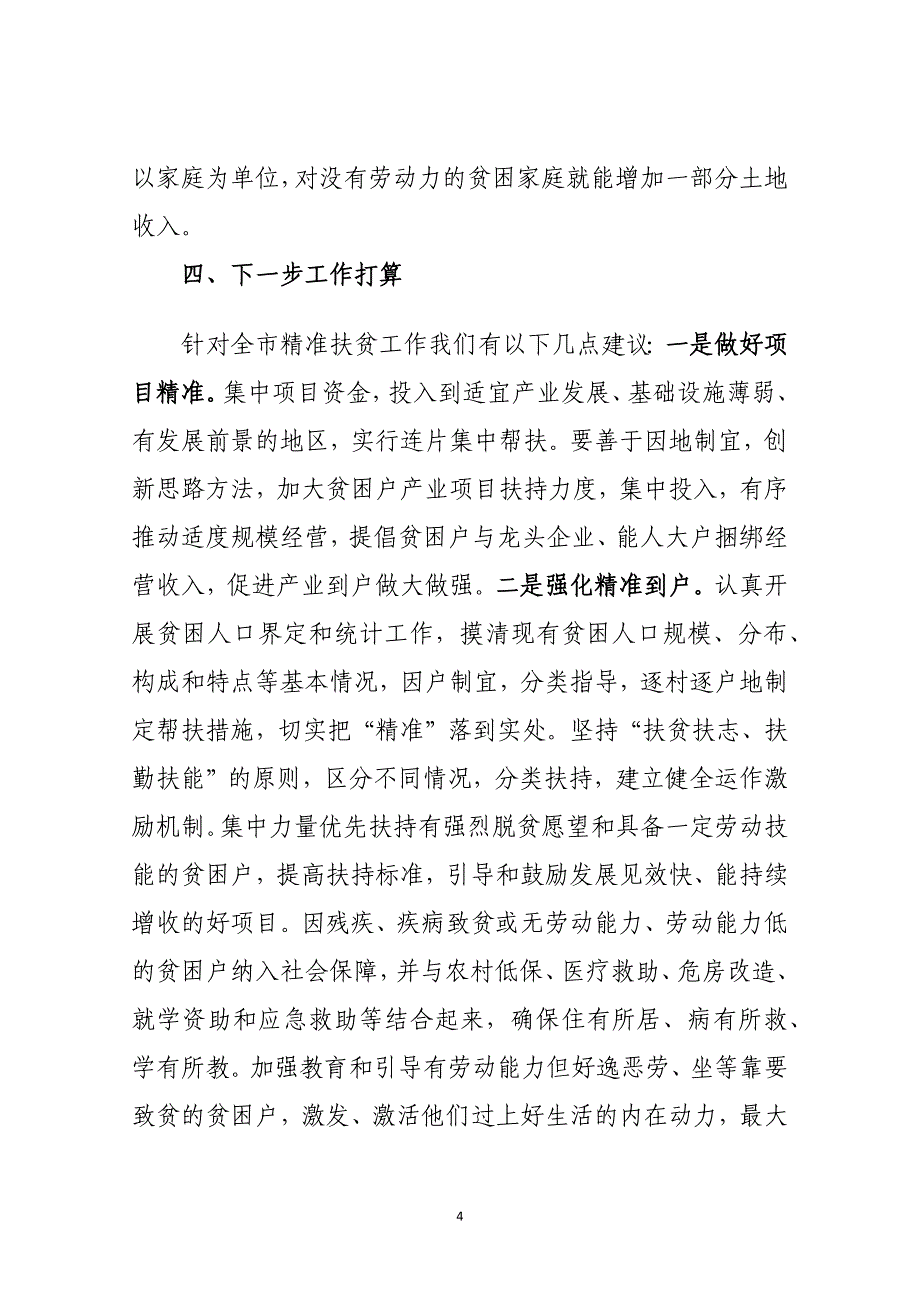 以家庭为单位,对没有劳动力的贫困家庭就能增加一部分土地
收入。
四、下一步工作打算
针对全市精准扶贫工作我们有以下几点建议：一是做好项
目精准。集中项目资金,投入到适宜产业发展、基础设施薄弱、
有发展前景的地区，实行连片集中帮扶。要善于因地制宜，创
新思路方法，加大贫困户产业项目扶持力度，集中投入，有序
推动适度规模经营，提倡贫困户与龙头企业、能人大户捆绑经
营收入，促进产业到户做大做强。二是强化精准到户。认真开
展贫困人口界定和统计工作，摸清现有贫困人口规模、分布、
构成和特点等基本情况，因户制宜，分类指导，逐村逐户地制
定帮扶措施，切实把“精准”落到实处。坚持“扶贫扶志、扶
勤扶能”的原则，区分不同情况，分类扶持，建立健全运作激
励机制。集中力量优先扶持有强烈脱贫愿望和具备一定劳动技
能的贫困户，提高扶持标准，引导和鼓励发展见效快、能持续
增收的好项目。因残疾、疾病致贫或无劳动能力、劳动能力低
的贫困户纳入社会保障，并与农村低保、医疗救助、危房改造、
就学资助和应急救助等结合起来，确保住有所居、病有所救、
学有所教。加强教育和引导有劳动能力但好逸恶劳、坐等靠要
致贫的贫困户，激发、激活他们过上好生活的内在动力，最大
4